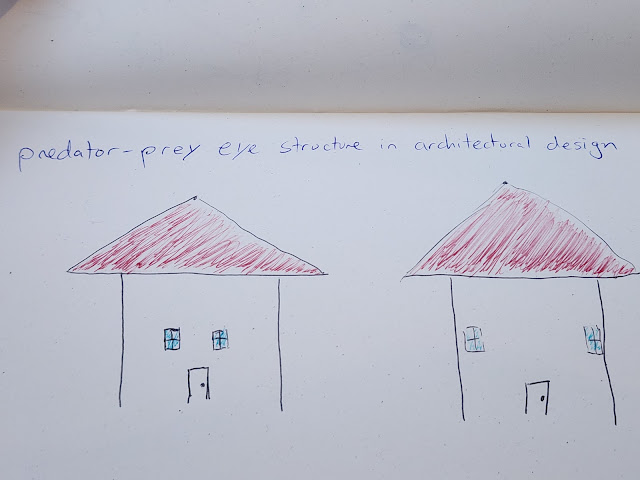 predator-prey eye structure in architectural design